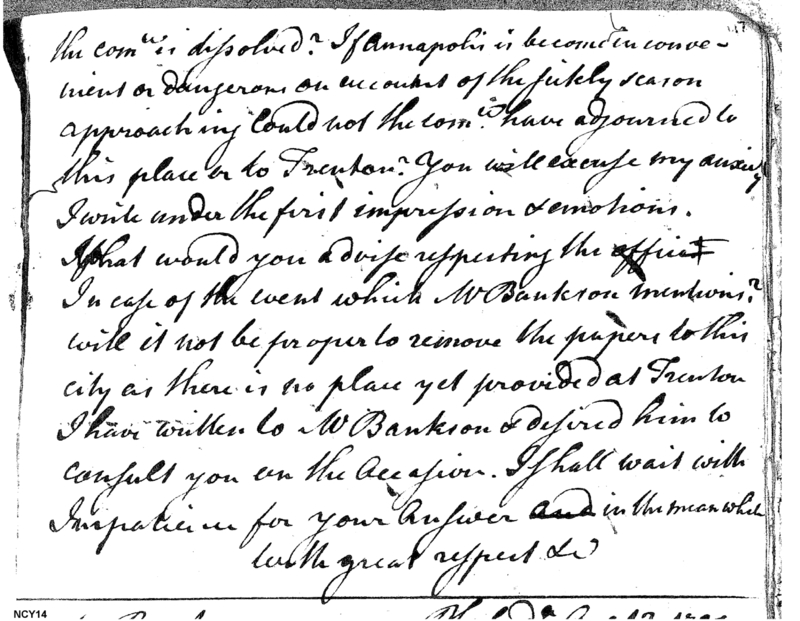 the com.ee is dissolved? If Annapolis is become inconve-
nient or dangerous on account of the sickly season
approaching could not the com.ee have adjourned to
this place or to Trenton? You will excuse my anxiety
I write under the first impression & emotions.
What would you advise respecting the office
In case of the event which Mr Bankson mentions?
will it not be proper to remove the papers to this
city as there is no place yet provided at Trenton
I have written to Mr Bankson & desired him to
consult you on the Occasion. I shall wait with
Impatience for your Answer and in the mean while
with great respect &c
NCY14